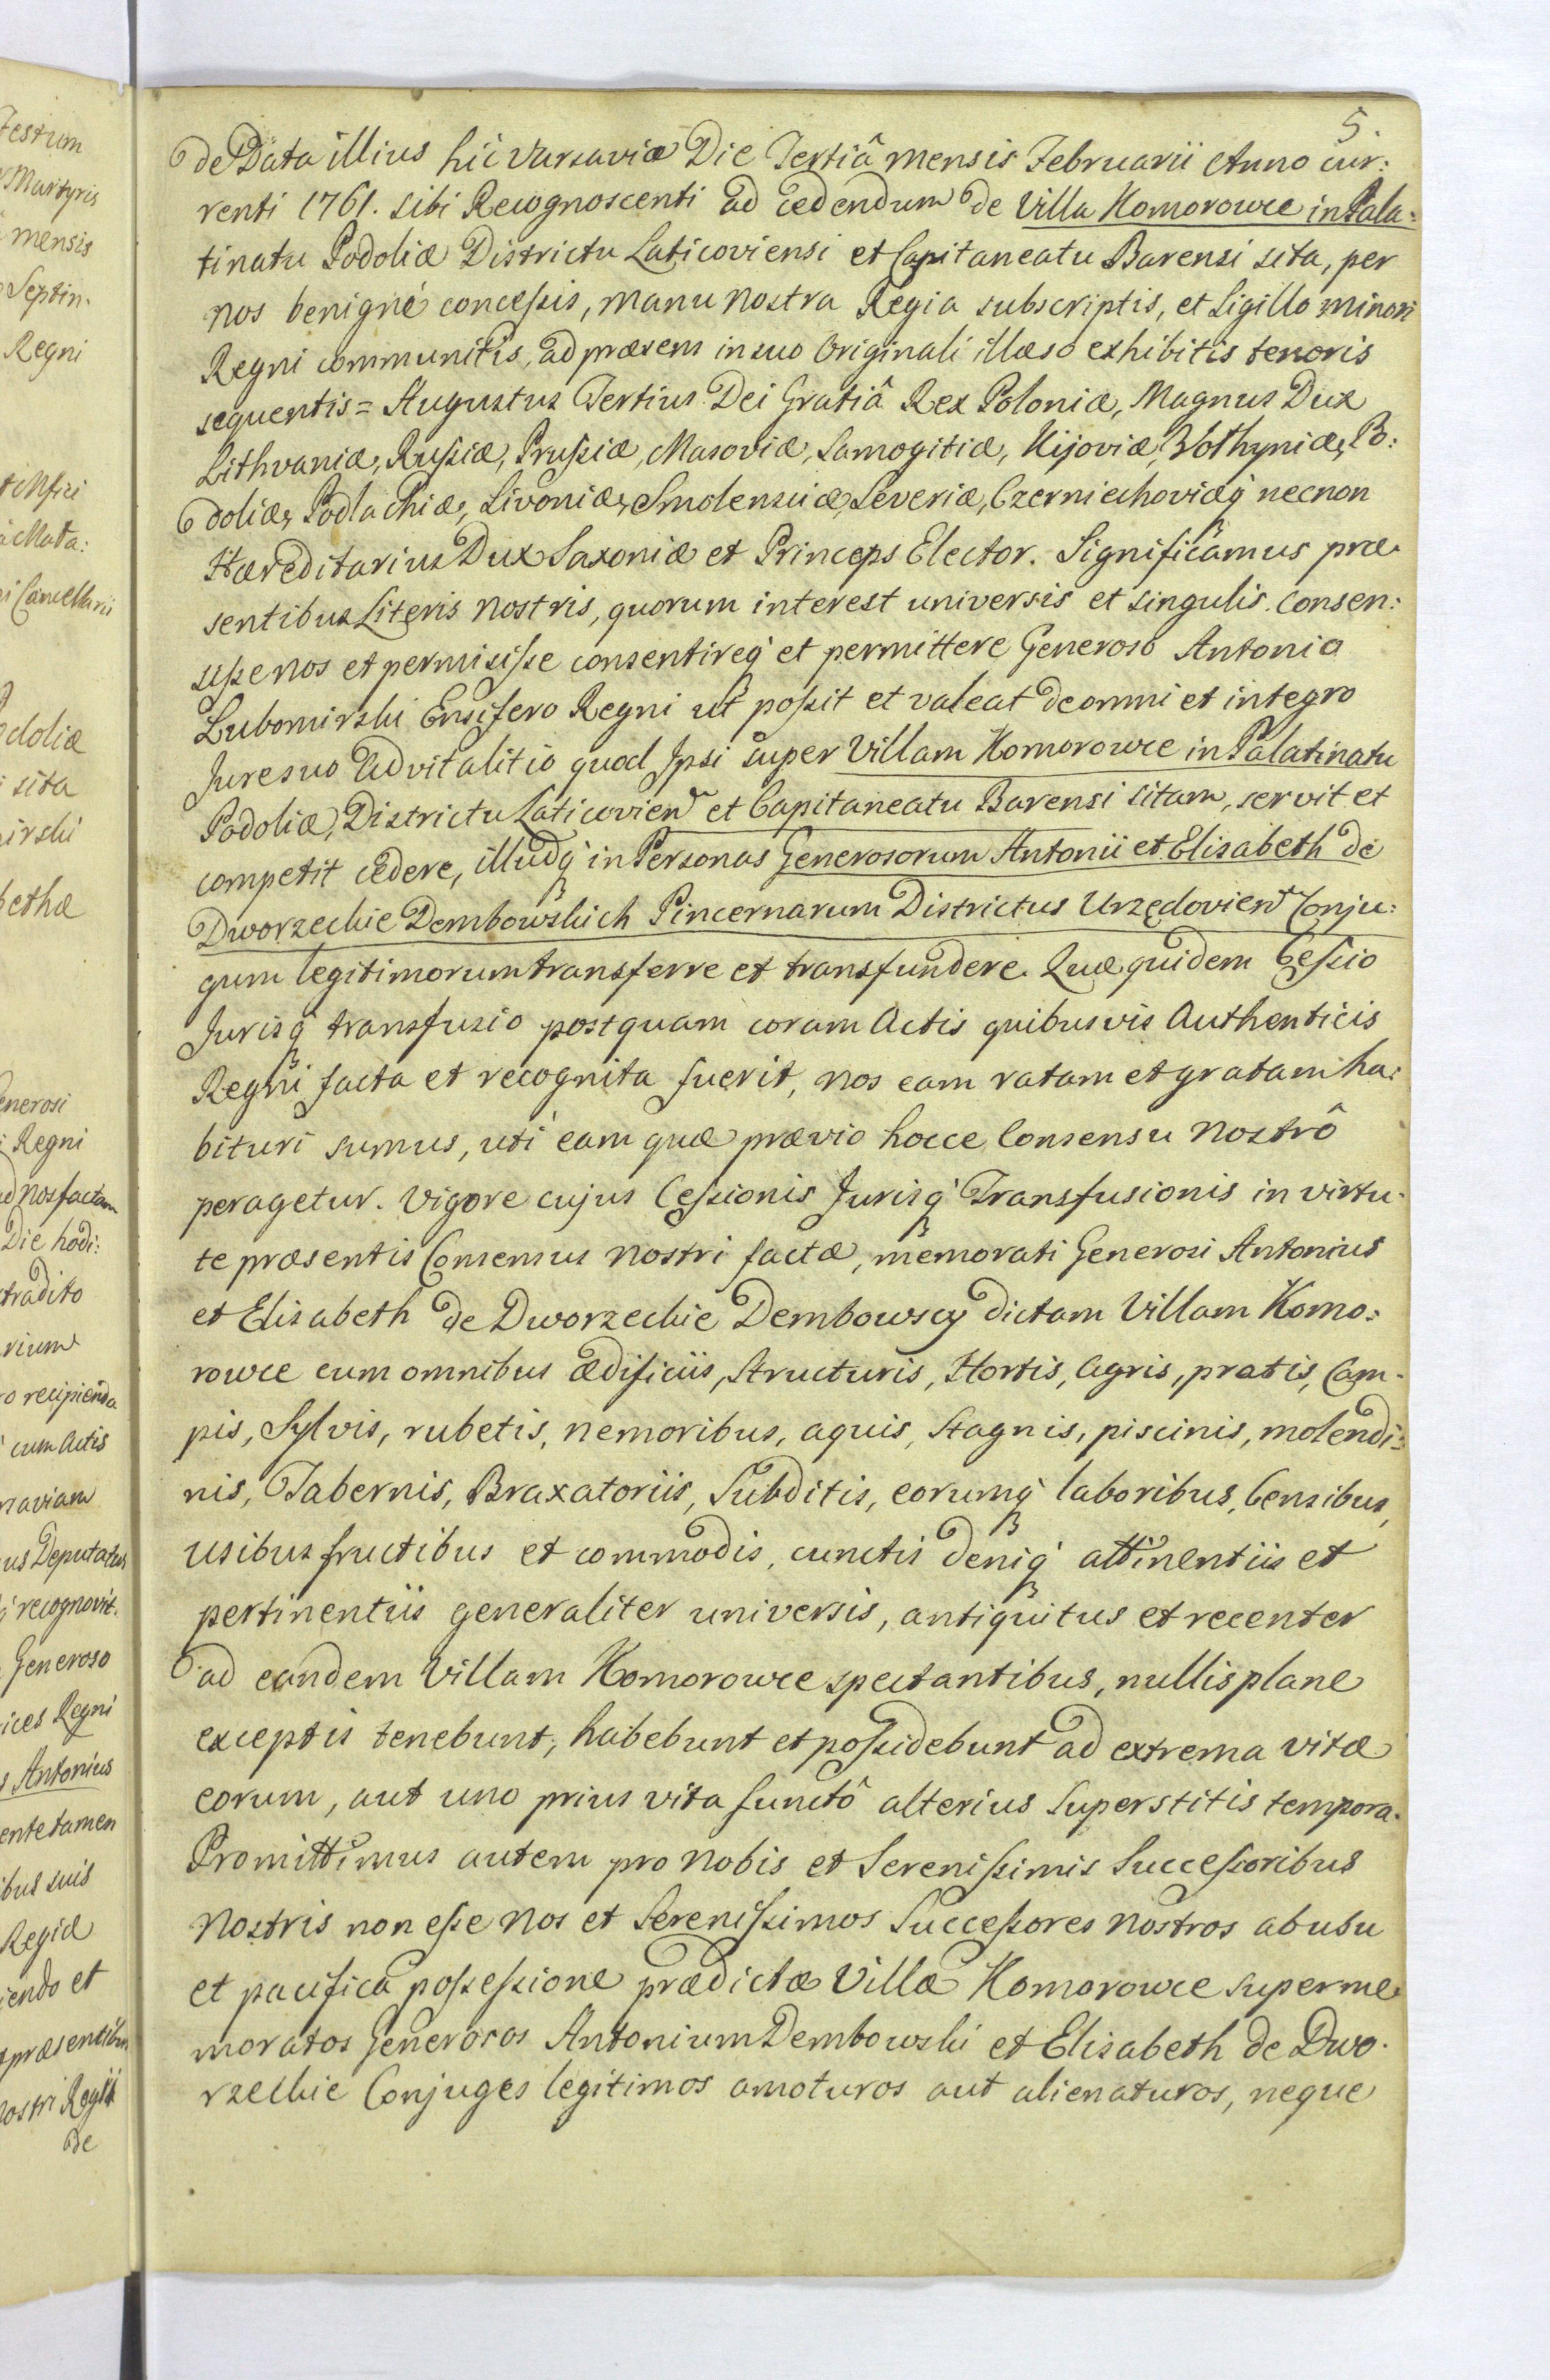 5.
de Data illius hic Varsaviæ Die Tertiâ mensis Februarii Anno cur:
renti 1761. sibi Recognoscenti ad cedendum de Villa Komorowce in Pala:
tinatu Podoliæ Districtu Laticoviensi et Capitaneatu Barensi sita, per
nos benignè concessis, manu nostra Regia subscriptis, et Sigillo minori
Regni communitis, ad præsens in suo Originali illæso exhibitis tenoris
sequentis = Augustus Tertius Dei Gratiâ Rex Poloniæ, Magnus Dux
Lithvaniæ, Russiæ, Prussiæ, Masoviæ, Samogitiæ, Kijoviæ, Volhyniæ, Po:
doliæ, Podlachiæ, Livoniæ, Smolensciæ, Severiæ, Czerniechoviæq necnon
Hæreditarius Dux Saxoniæ et Princeps Elector. Significamus præ-
sentibus Literis nostris, quorum interest universis et singulis. Consen:
sisse nos et permisisse consentireq et permittere Generoso Antonio
Lubomirski Ensifero Regni ut possit et valeat de omni et integro
Jure suo Advitalitio quod Ipsi super Villam Komorowce in Palatinatu
Podoliæ, Districtu Laticovien et Capitaneatu Barensi sitam, servit et
competit cedere, illudq in Personas Generosorum Antonii et Elisabeth de
Dworzeckie Dembowskich Pincernarum Districtus Urzędovien Conju:
gum legitimorum transferre et transfundere. Quæ quidem Cessio
Jurisq transfusio postquam coram Actis quibusvis Authenticis
Regni facta et recognita fuerit, nos eam ratam et gratam ha:
bituri sumus, uti eam quæ prævio hocce Consensu Nostrô
peragetur. Vigore cujus Cessionis Jurisq Transfusionis in virtu-
te præsentis Consensus nostri factæ, memorati Generosi Antonius
et Elisabeth de Dworzeckie Dembowscy dictam Villam Komo:
rowce cum omnibus ædificiis, Structuris, Hortis, Agris, pratis, Cam-
pis, Sylvis, rubetis, nemoribus, aquis, Stagnis, piscinis, molendi:
nis, Tabernis, Braxatoriis, Subditis, eorumq laboribus, Censibus,
usibus fructibus et commodis, cunctis deniq attinentiis et
pertinentiis generaliter universis, antiquitus et recenter
ad eandem Villam Komorowce spectantibus, nullis plane
exceptis tenebunt, habebunt et possidebunt ad extrema vitæ
eorum, aut uno prius vita functô alterius Superstitis tempora.
Promittimus autem pro nobis et Serenissimis Successoribus
Nostris non esse nos et Serenissimos Successores nostros ab usu
et pacifica possessione prædictæ Villæ Komorowce superme-
moratos Generosos Antonium Dembowski et Elisabeth de Dwo-
rzeckie Conjuges legitimos amoturos aut alienaturos, neque